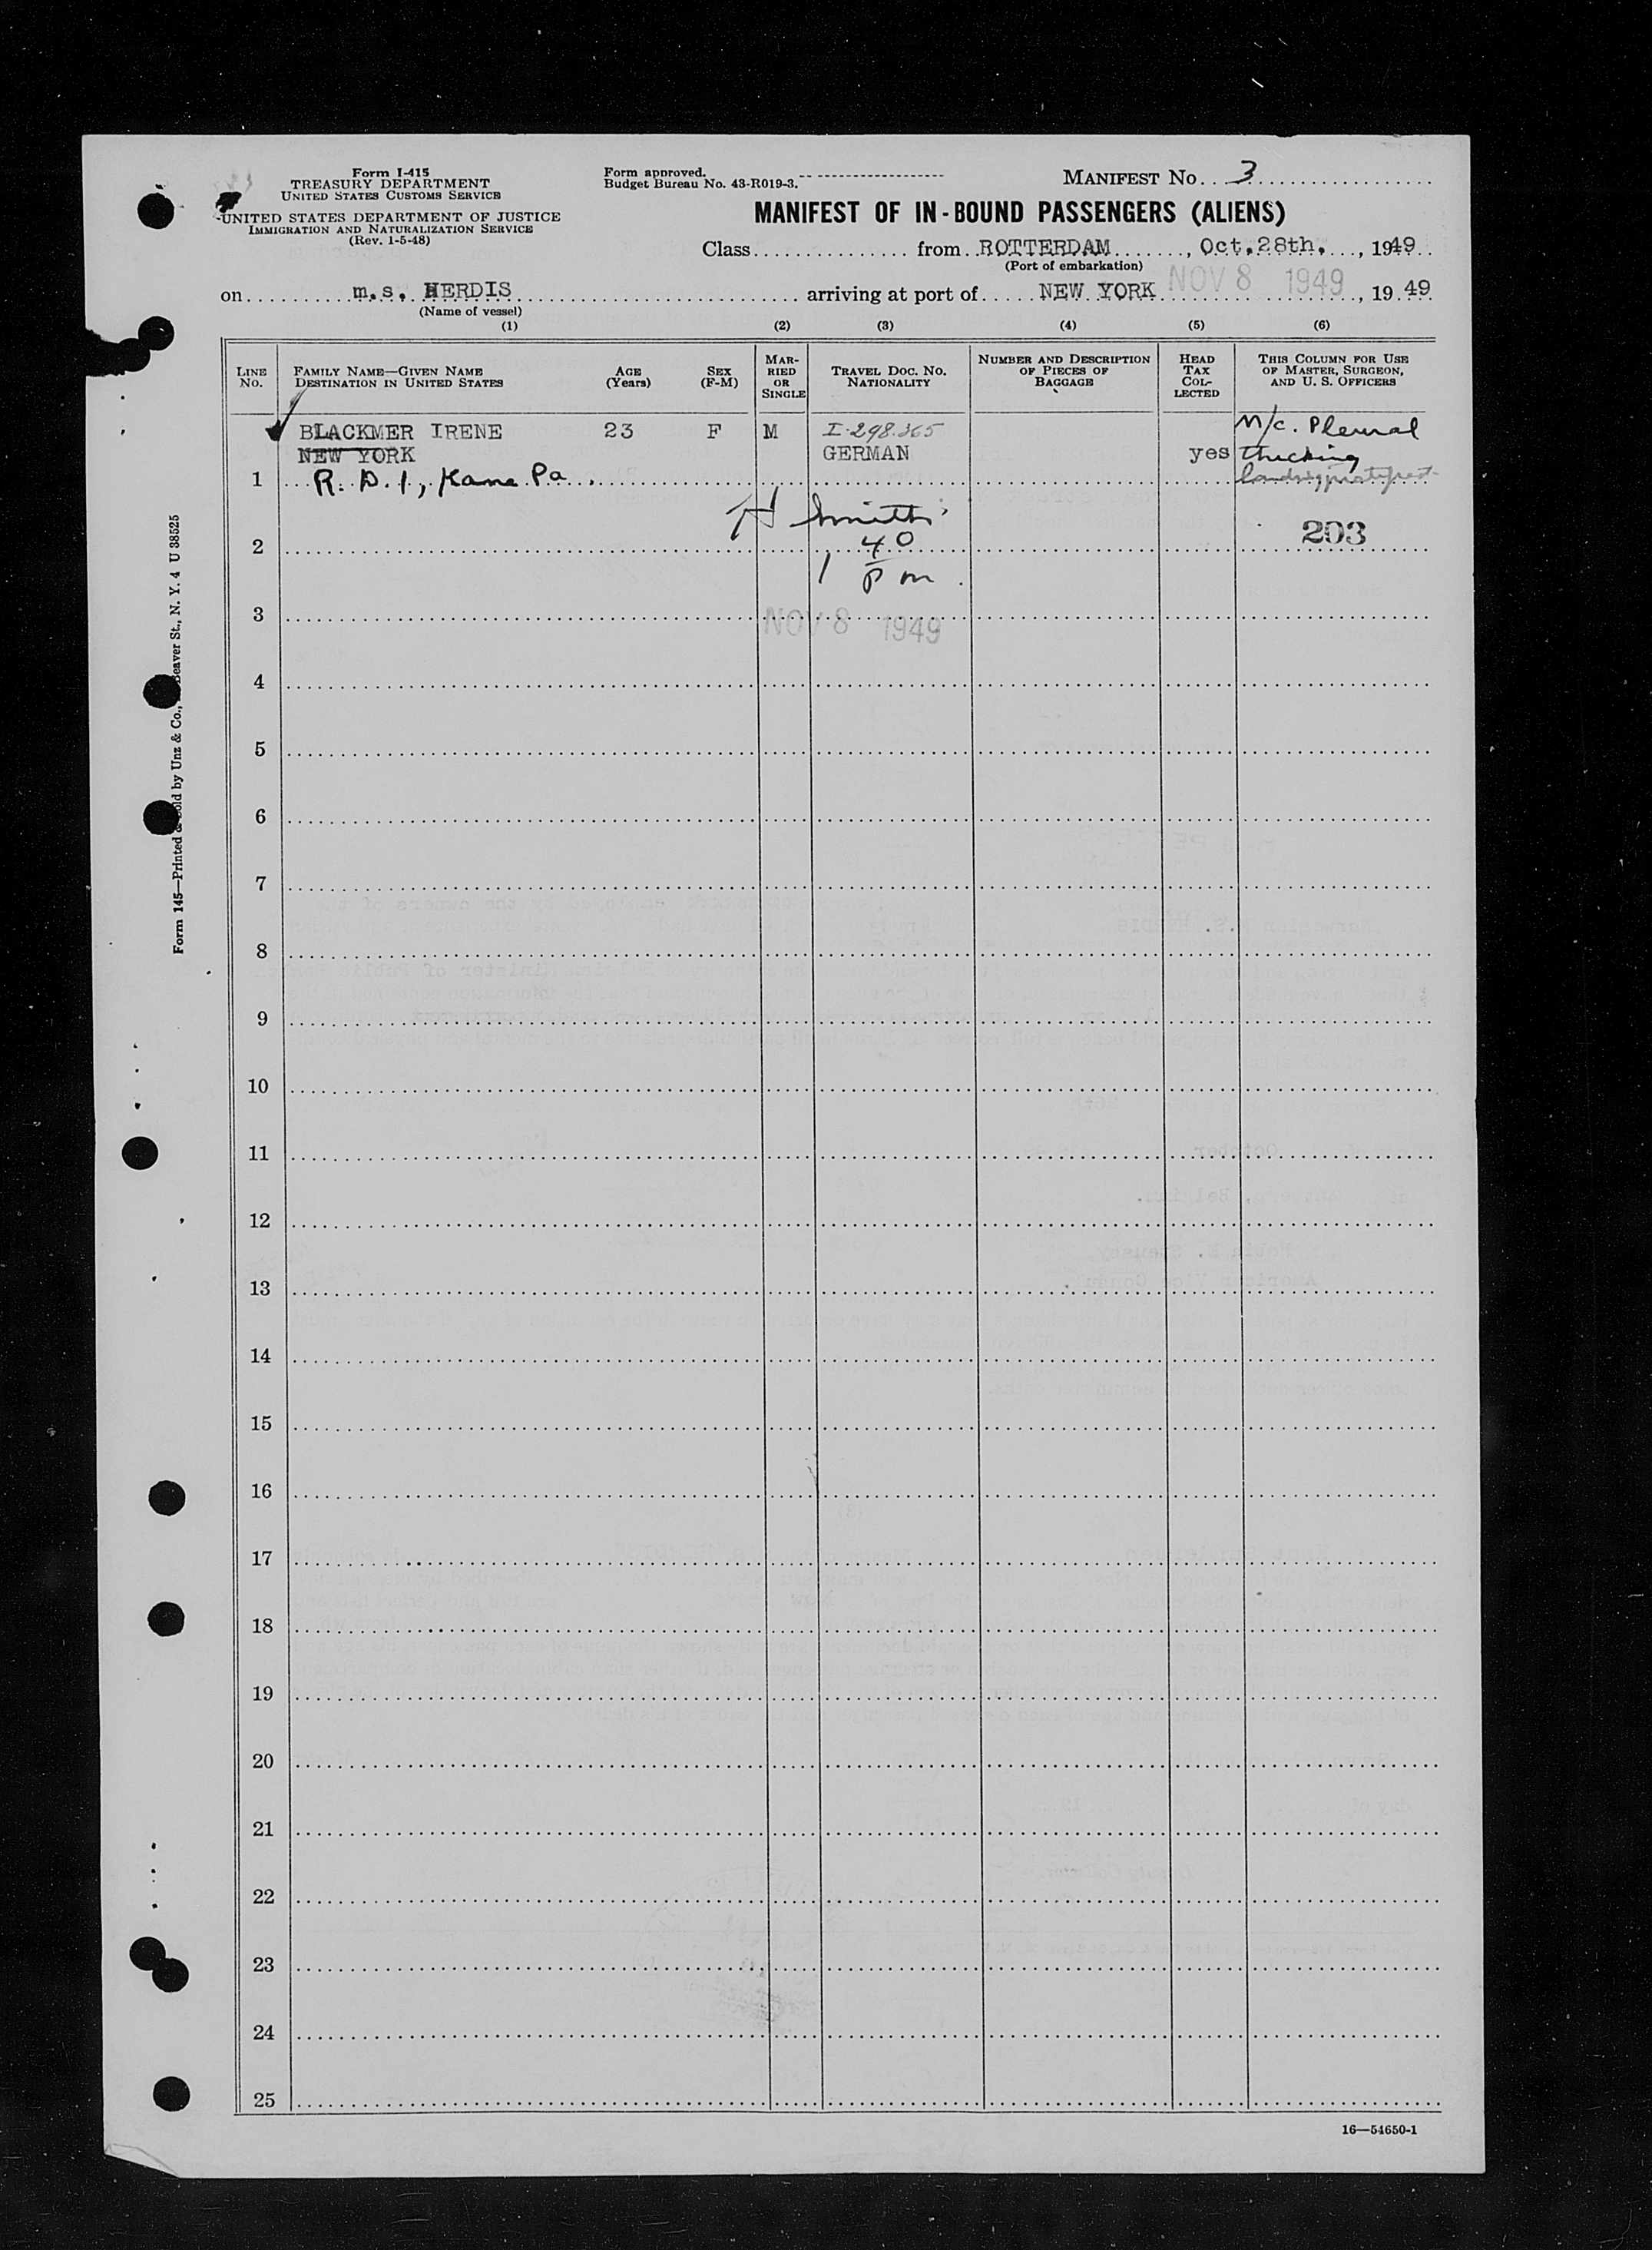 Form I-415
TREASURY DEPARTMENT
UNITED STATES CUSTOMS SERVICE
UNITED STATES DEPARTMENT OF JUSTICE
IMMIGRATION AND NATURALIZATION SERVICE
(Rev. 1-5-48)
Form approved.
Budget Bureau No. 43-R019-3.
MANIFEST No. 3
MANIFEST OF IN-BOUND PASSENGERS (ALIENS)
Class from ROTTERDAM, Oct.28th, 1949
(Port of embarkation)
on m.s. HERDIS arriving at port of NEW YORK NOV 8 1949, 1949
(Name of vessel)
(1) (2) (3) (4) (5) (6)
LINE No. FAMILY NAME—GIVEN NAME DESTINATION IN UNITED STATES AGE (Years) SEX (F-M) MARRIED OR SINGLE TRAVEL DOC. No. NATIONALITY NUMBER AND DESCRIPTION OF PIECES OF BAGGAGE HEAD TAX COLLECTED THIS COLUMN FOR USE OF MASTER, SURGEON, AND U. S. OFFICERS
BLACKMER IRENE 23 F M I-298365 M/c. Pleural
NEW YORK GERMAN yes thicking
1 R. D. 1, Kane Pa.
H Smith
2 40 203
1 pm
3 NOV 8 1949
4
5
6
7
8
9
10
11
12
13
14
15
16
17
18
19
20
21
22
23
24
25
16—54650-1
Form 145—Printed & Sold by Unz & Co., Beaver St., N. Y. 4 U 38525